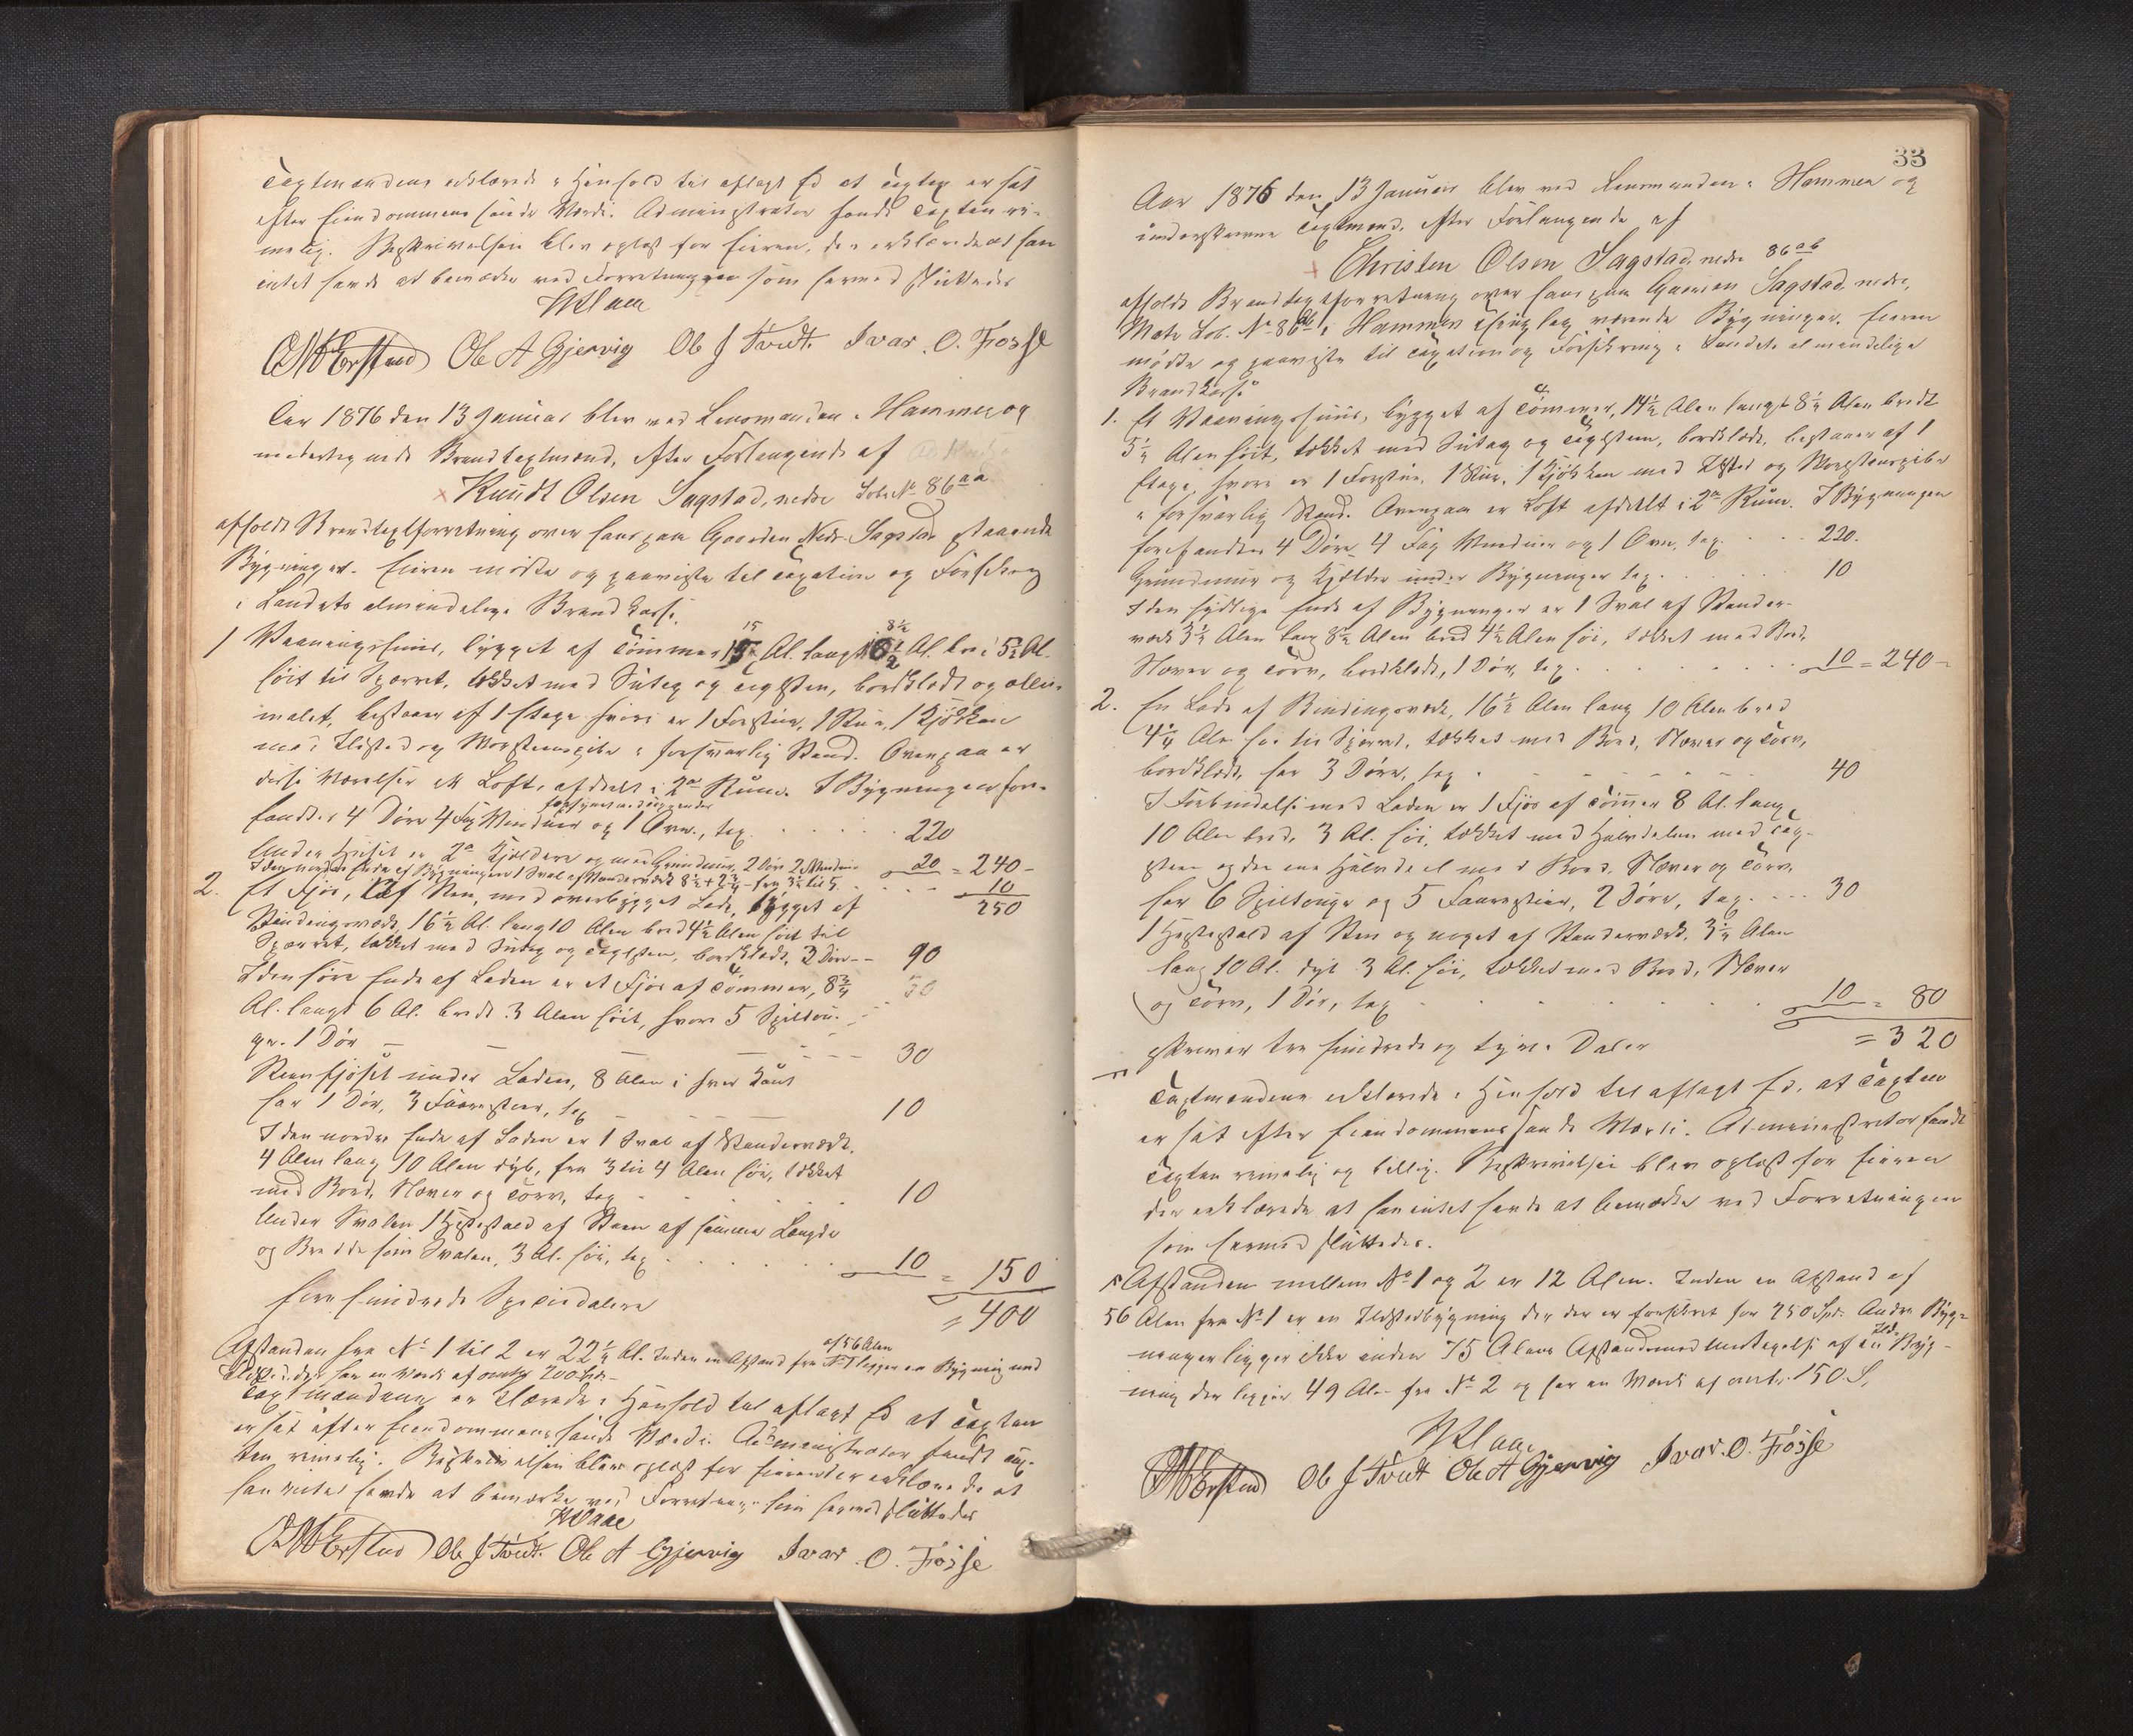 Taxtmændene erklærede i Henhold til aflagt Ed at Taxten er sat
efter Eiendommens sande Værdi. Administrator fandt Taxten ri-
melig. Beskrivelsen blev oplæst for Eieren, der erklærede at han
intet havde at bemærke ved Forretningen som hermed sluttedes
WKlaae
Ole A Gjervig Ole J Tvedt. Ivar. O. Fosse
Aar 1876 den 13 Januar blev ved Lensmanden i Hammer og
undertegnede Brandtaxtmænd, efter Forlangende af
Knudt Olsen Sagstad, nedre Løbe No 86 aa
afholdt Brandtaxtforretning over hans paa Gaarden Nedr. Sagstad staaende
Bygninger. Eieren mødte og paaviste til Taxation og Forsikring
i Landets almindelige Brandkasse.
1 Vaaningshuus, bygget af Tømmer 15 Al. langt 8½ Al. bredt 5½ Al.
høit til Sparret, tækket med Sutag og Teglsten, bordklædt og olie-
malet, bestaaer af 1 Etage hvori er 1 Forstue, 1 Stue, 1 Kjøkken
med Ildsted og Murstenspibe i forsvarlig Stand. Ovenpaa er
disse Værelser et Loft, afdelt i 2de Rum. I Bygningen fore-
fandtes 4 Døre 4 Fag Vinduer og 1 Ovn, tax. 220
Under Huset er 2de Kjældere og med Grundmur, 2 Døre 2 Vinduer 20 = 240 -
I den nordre Ende af Bygningen 1 Sval af Standerværk 10
2. Et Fjøs, af Sten, med overbygget Lade, bygget af 250
Bindingsværk, 16½ Al. lang 10 Alen bred 4½ Alen høit til
Sparret, tækket med Sutag og Teglsten, bordklædt, 3 Døre -- 90
I den søre Ende af Laden er et Fjøs af Tømmer, 8¾
Al. langt 6 Al. bredt 3 Alen høit, hvor 5 Spiltou-
ge. 1 Dør 30
Steenfjøset under Laden, 8 Alen i hver Kant
har 1 Dør, 3 Faarestier, tax 10
I den nordre Ende af Laden er 1 Sval af Standerværk.
4 Alen lang 10 Alen dyb, fra 3 til 4 Alen høi, tækket
med Bord, Næver og Tørv, tax 10
Under Svalen 1 Hestestald af Steen af samme Længde
og Bredde som Svalen, 3 Al. høi, tax 10 = 150
fire hundrede Speciedalere = 400
Afstanden fra No 1 til 2 er 22½ Al. Inden en Afstand af 56 Alen fra No 1 ligger en Bygning med
Ildsted der har en Værdi af omtr 200
Taxtmændene erklærede i Henhold til aflagt Ed at Taxten
er sat efter Eiendommens sande Værdi. Administrator fandt Tax-
ten rimelig. Beskrivelsen blev oplæst for Eieren der erklærede at
han intet havde at bemærke ved Forretningen som hermed sluttedes
WKlaae
Ole J Tvedt. Ole A Gjervig Ivar. O. Fosse
33
Aar 1876 den 13 Januar blev ved Lensmanden i Hammer og
underskrevne Taxtmænd, efter Forlangende af
Christen Olsen Sagstad, nedre 86 ab
afholdt Brandtaxtforretning over hans paa Gaarden Sagstad, nedre,
Matr Løb. No 86 ab i Hammer Thinglag værende Bygninger. Eieren
mødte og paaviste til Taxation og Forsikring i Landets almindelige
Brandkasse
1. Et Vaaningshuus, bygget af Tømmer, 14½ Alen langt 8½ Alen bredt
5½ Alen høit, tækket med Sutag og Teglsten, bordklædt, bestaaer af 1
Etage, hvori er 1 Forstue, 1 Stue, 1 Kjøkken med Ildsted og Murstenspibe
i forsvarlig Stand. Ovenpaa er Loft afdelt i 2de Rum. I Bygningen
forefandtes 4 Døre 4 Fag Vinduer og 1 Ovn, tax. 220.
Grundmur og Kjælder under Bygningen tax. 10
I den sydlige Ende af Bygningen er 1 Sval af Stander-
værk 3½ Alen lang 8½ Alen bred 4½ Alen høi, tækket med Bord,
Næver og Tørv, bordklædt, 1 Dør, tax. 10 = 240 -
2. En Lade af Bindingsværk, 16½ Alen lang 10 Alen bred
4¼ Alen høi til Sparret, tækket med Bord, Næver og Tørv,
bordklædt, har 3 Døre, tax 40
I Forbindelse med Laden er 1 Fjøs af Tømmer 8 Al. lang,
10 Alen bred, 3 Al. høi, tækket med Halvdelen med Teg-
sten og den ene Halvdeel med Bord, Næver og Tørv,
har 6 Spiltouge og 5 Faarestier, 2 Døre, tax. 30
1 Hestestald af Sten og noget af Standerværk, 3½ Alen
lang 10 Al. dyb 3 Al. høi, tækket med Bord, Næver
og Tørv, 1 Dør, tax 10 = 80
skriver tre hundrede og tyve Daler = 320
Taxtmændene erklærede i Henhold til aflagt Ed, at Taxten
er sat efter Eiendommens sande Værdi. Administrator fandt
Taxten rimelig og billig. Beskrivelsen blev oplæst for Eieren
der erklærede at han intet havde at bemærke ved Forretningen
som hermed sluttedes.
Afstanden mellem No 1 og 2 er 12 Alen. Inden en Afstand af
56 Alen fra No 1 er en Ildstedbygning der der er forsikret for 250 Spd. Andre Byg-
ninger ligger ikke inden 75 Alens Afstand med Undtagelse af en Ilds Byg-
ning der ligger 49 Alen fra No 2 og har en Værdi af omtr. 150 S.
WKlaae
Ole J Tvedt Ole A Gjervig Ivar. O. Fosse